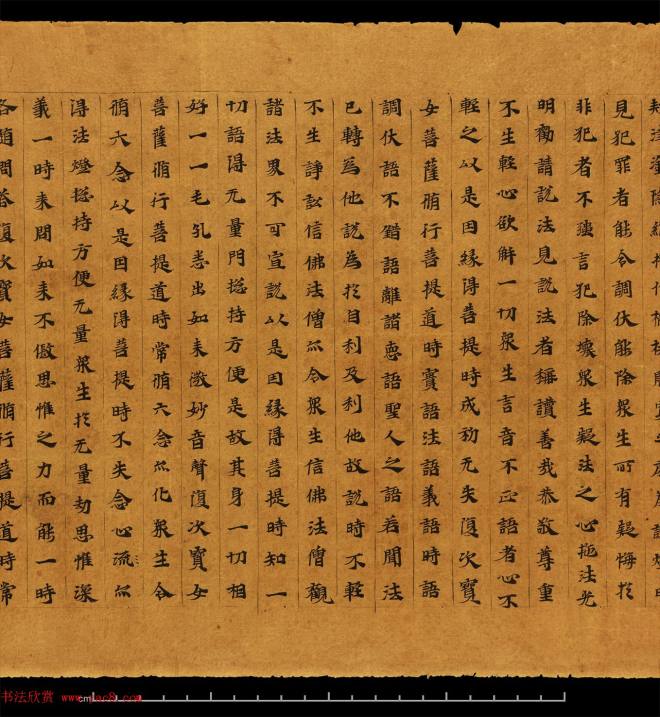 見犯罪者能令調伏能除衆生所有疑悔於
非犯者不强言犯除壞衆生疑法之心施法光
明勸請說法見說法者稱讚善哉恭敬尊重
不生輕心欲解一切衆生言音不正語者心不
輕之以是因緣得菩提時成就无失復次寶
女菩薩脩行菩提道時實語法語義語時語
調伏語不錯語離諸惡語聖人之語若聞法
已轉為他說為於自利及利他故說時不輕
不生諍訟信佛法僧亦令衆生信佛法僧觀
諸法界不可宣說以是因緣得菩提時知一
切語得无量門捴持方便是故其身一切相
好一一毛孔悉出如来微妙音聲復次寶女
菩薩脩行菩提道時常脩六念亦化衆生令
脩六念以是因緣得菩提時不失念心流
得法燈捴持方便无量衆生於无量劫思惟深
義一時来問如来不假思惟之力而能一時
各隨問答復次寶女菩薩脩行菩提道時常
书法欣赏
cm